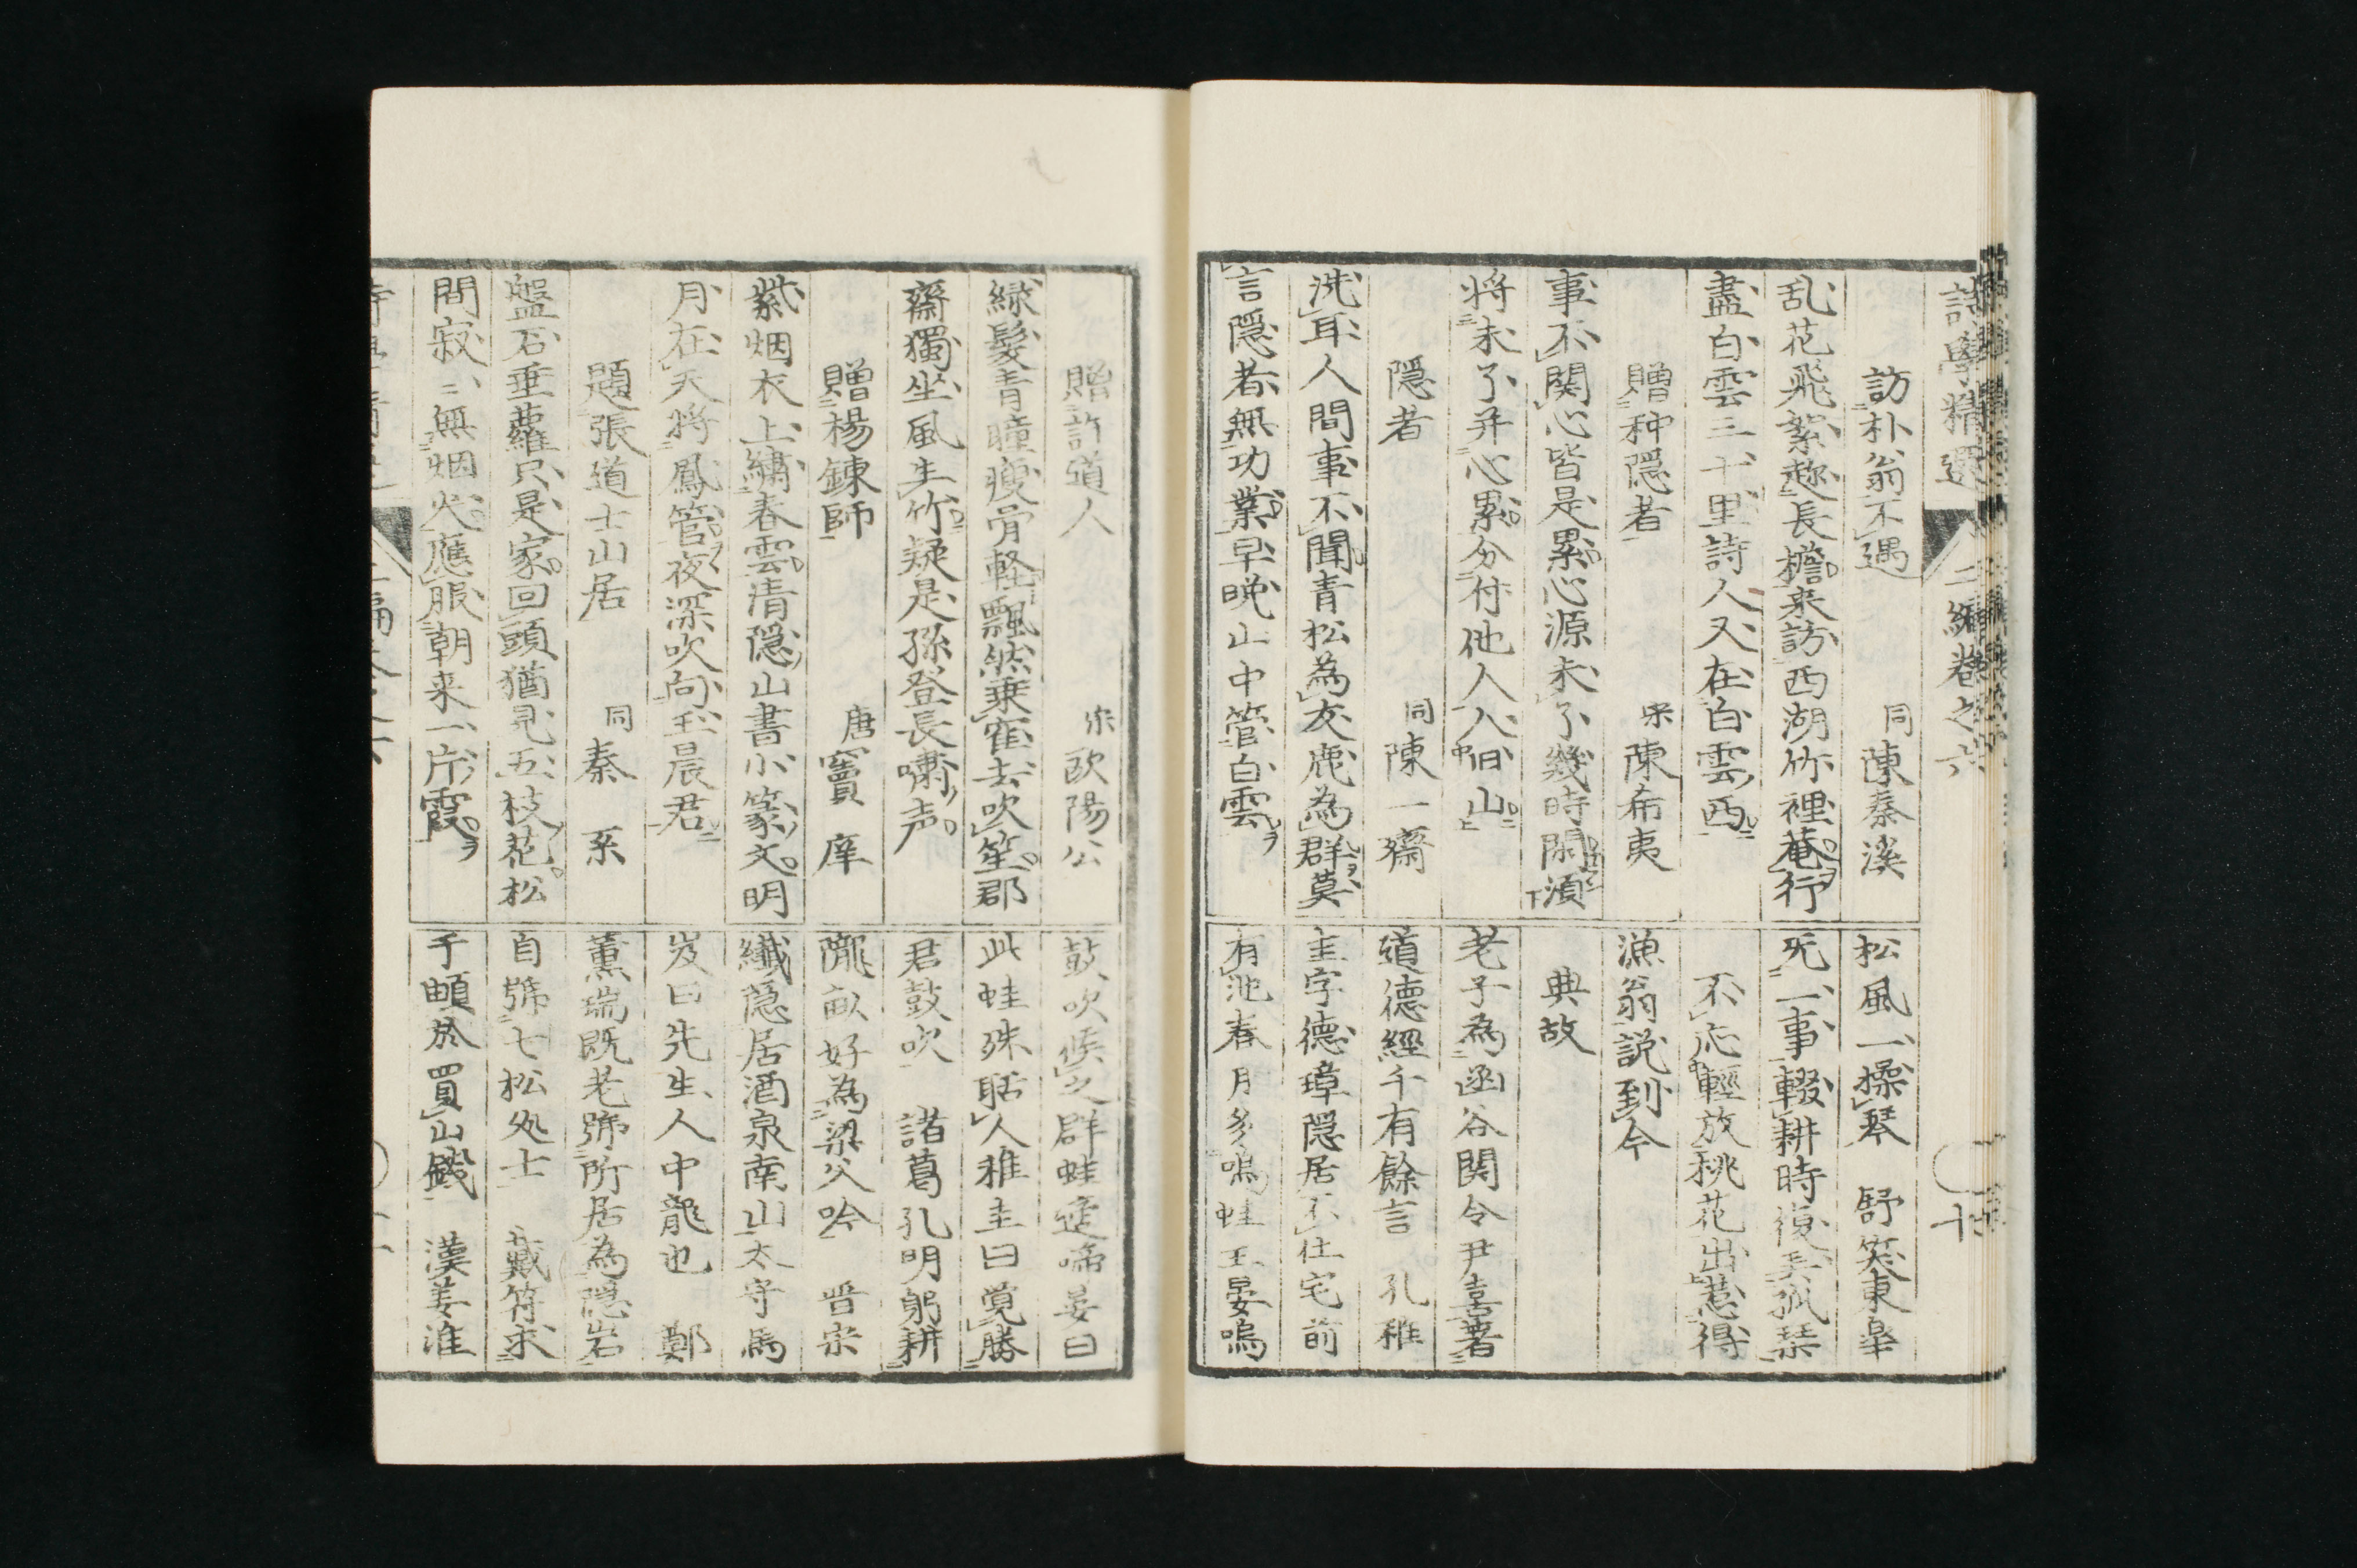 詩學精選 二編卷之六
訪朴翁不遇 同 陳秦溪
乱花飛絮趂長檐来訪西湖竹裡菴行
盡白雲三十里詩人又在白雲西
贈种隠者 宋 陳希夷
事不関心皆是累心源未了幾時閑湏
将未了并心累分付他人入旧山
隠者 同 陳一齋
洗耳人間事不聞青松為友鹿為群莫
言隠者無功業早晩山中管白雲
松風一操琴 舒笑東皐
旡一事輟耕時復弄孤琴
不応輕放桃花出惹得
漁翁説到今
典故
老子為函谷関令尹喜著
道德經千有餘言 孔稚
圭字德璋隠居不仕宅前
有池春月多鳴蛙王晏鳴
贈許道人 宋 欧陽公
緑髮青瞳瘦骨軽飄然乗寉去吹笙郡
齋獨坐風生竹疑是孫登長嘯声
贈楊錬師 唐 竇庠
紫烟衣上繡春雲清隠山書小篆文明
月在天将鳳管夜深吹向玉晨君
題張道士山居 同 秦系
盤石垂蘿只是家回頭猶見五枝花松
間寂〻無烟火應服朝来一片霞
鼓吹候之群蛙適啼晏曰
此蛙殊聒人稚圭曰覚勝
君鼓吹 諸葛孔明躬耕
隴畝好為梁父吟 晋宋
纖隠居酒泉南山太守馬
岌曰先生人中龍也 鄭
薫瑞既老號所居為隠岩
自號七松処士 戴符求
于頔於買山銭 漢姜淮